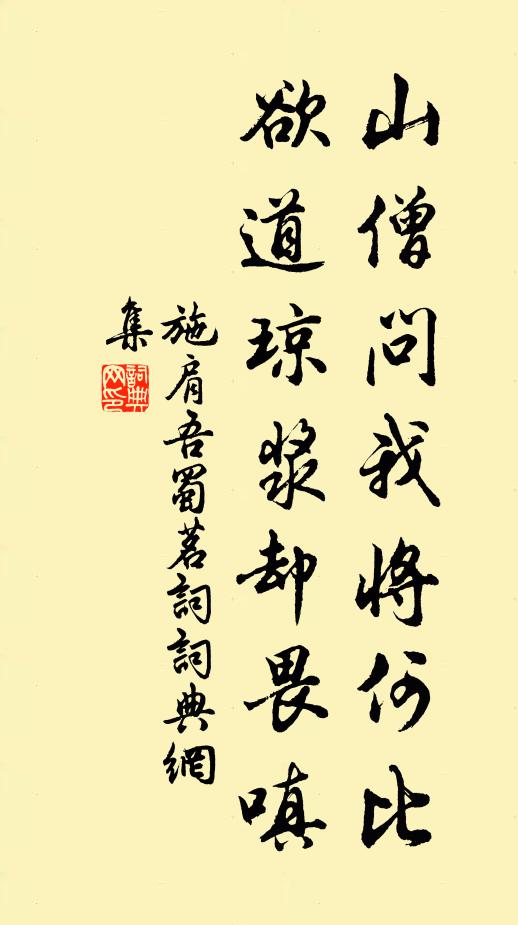 山僧問我將何比
欲道琼漿却畏嗔
施肩吾蜀茗詞詞典網
集
詞典
网印